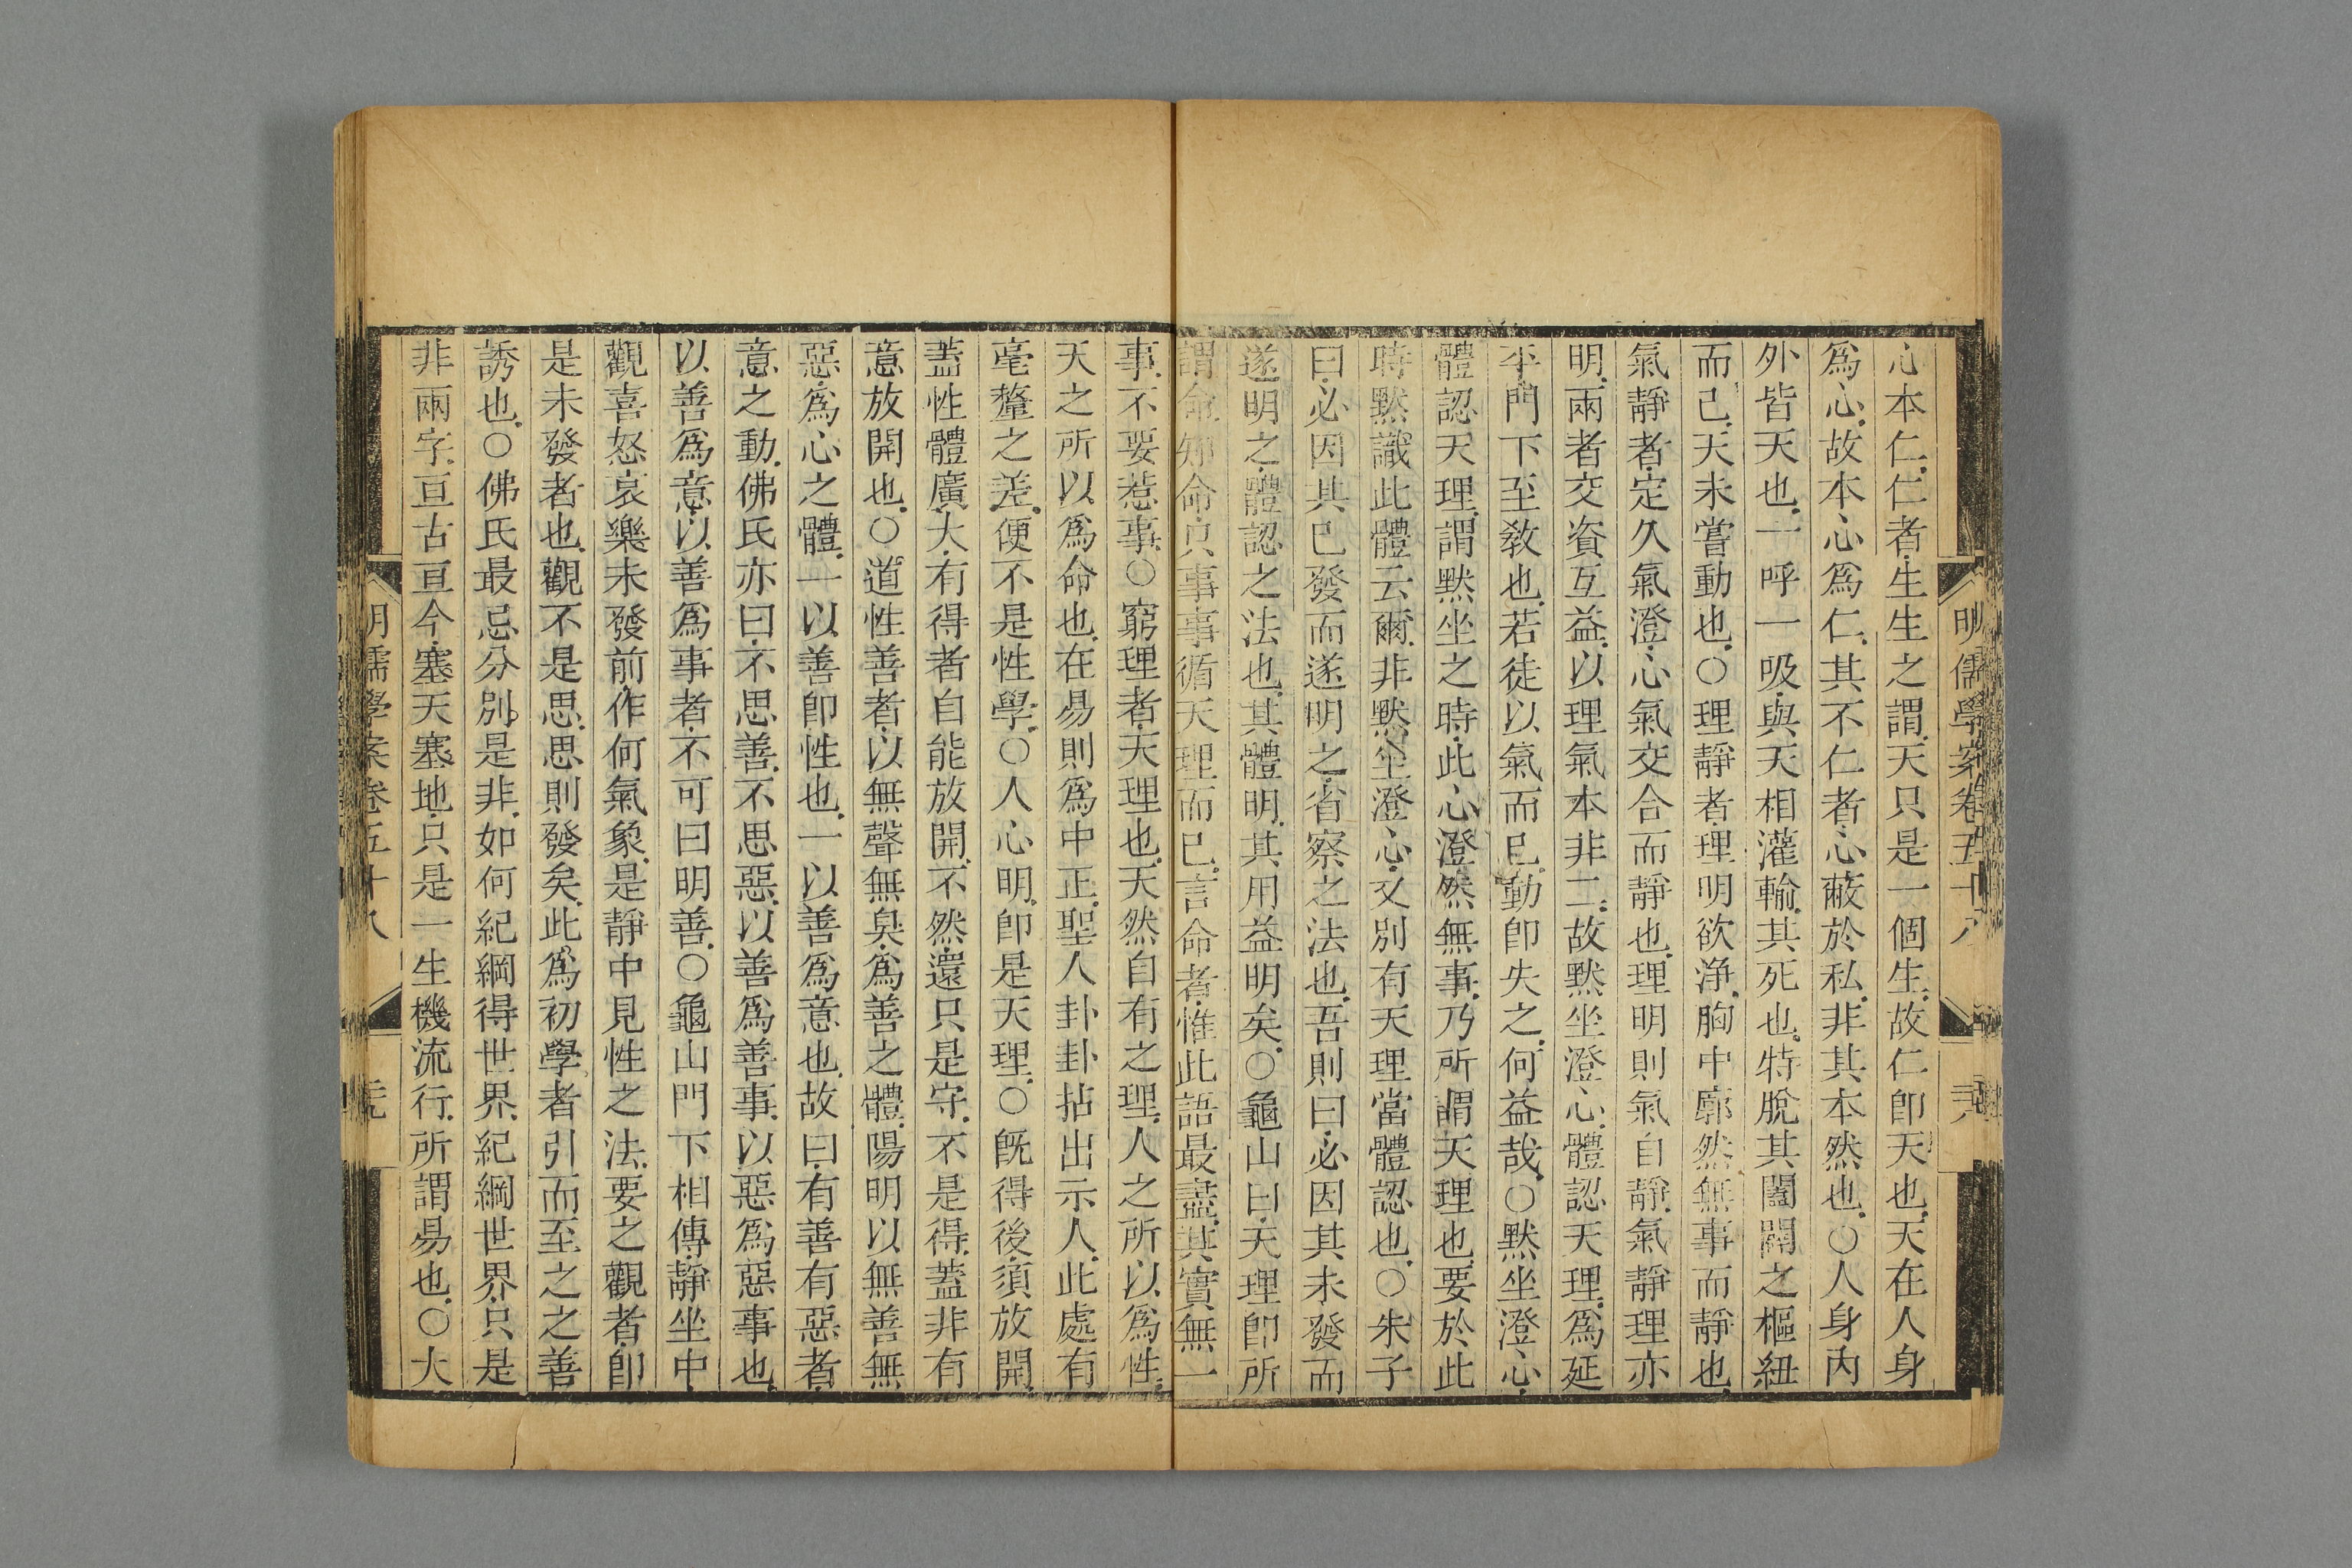 心本仁仁者生生之謂天只是一個生故仁卽天也天在人身
爲心故本心爲仁其不仁者心蔽於私非其本然也○人身內
外皆天也一呼一吸與天相灌輸其死也特脫其闔闢之樞紐
而已天未嘗動也○理靜者理明欲淨胸中廓然無事而靜也
氣靜者定久氣澄心氣交合而靜也理明則氣自靜氣靜理亦
明兩者交資互益以理氣本非二故默坐澄心體認天理爲延
平門下至敎也若徒以氣而已動卽失之何益哉○默坐澄心
體認天理謂默坐之時此心澄然無事乃所謂天理也要於此
時默識此體云爾非默坐澄心又別有天理當體認也○朱子
曰必因其已發而遂明之省察之法也吾則曰必因其未發而
遂明之體認之法也其體明其用益明矣○龜山曰天理卽所
謂命知命只事事循天理而已言命者惟此語最盡其實無一
事不要惹事○窮理者天理也天然自有之理人之所以爲性
天之所以爲命也在易則爲中正聖人卦卦拈出示人此處有
毫釐之差便不是性學○人心明卽是天理○旣得後須放開
蓋性體廣大有得者自能放開不然還只是守不是得蓋非有
意放開也○道性善者以無聲無臭爲善之體陽明以無善無
惡爲心之體一以善卽性也一以善爲意也故曰有善有惡者
意之動佛氏亦曰不思善不思惡以善爲善事以惡爲惡事也
以善爲意以善爲事者不可曰明善○龜山門下相傳靜坐中
觀喜怒哀樂未發前作何氣象是靜中見性之法要之觀者卽
是未發者也觀不是思思則發矣此爲初學者引而至之之善
誘也○佛氏最忌分別是非如何紀綱得世界紀綱世界只是
非兩字亘古亘今塞天塞地只是一生機流行所謂易也○大
明儒學案卷五十八
明儒學案卷五十八